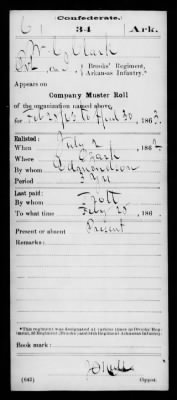 Confederate.
C 34 Ark.
W. C. Clark
Pvt, Co. C, Brooks' Regiment, Arkansas Infantry.*
Appears on
Company Muster Roll
of the organization named above,
for Feb 28/63 to April 30, 1863.
Enlisted:
When July 2, 1862
Where Ozark
By whom Edmondson
Period 3 yrs
Last paid:
By whom
To what time Feby 28, 186
Present or absent Present
Remarks:
*This regiment was designated at various times as Brooks' Regiment,
Book mark:
(642) Copyist.